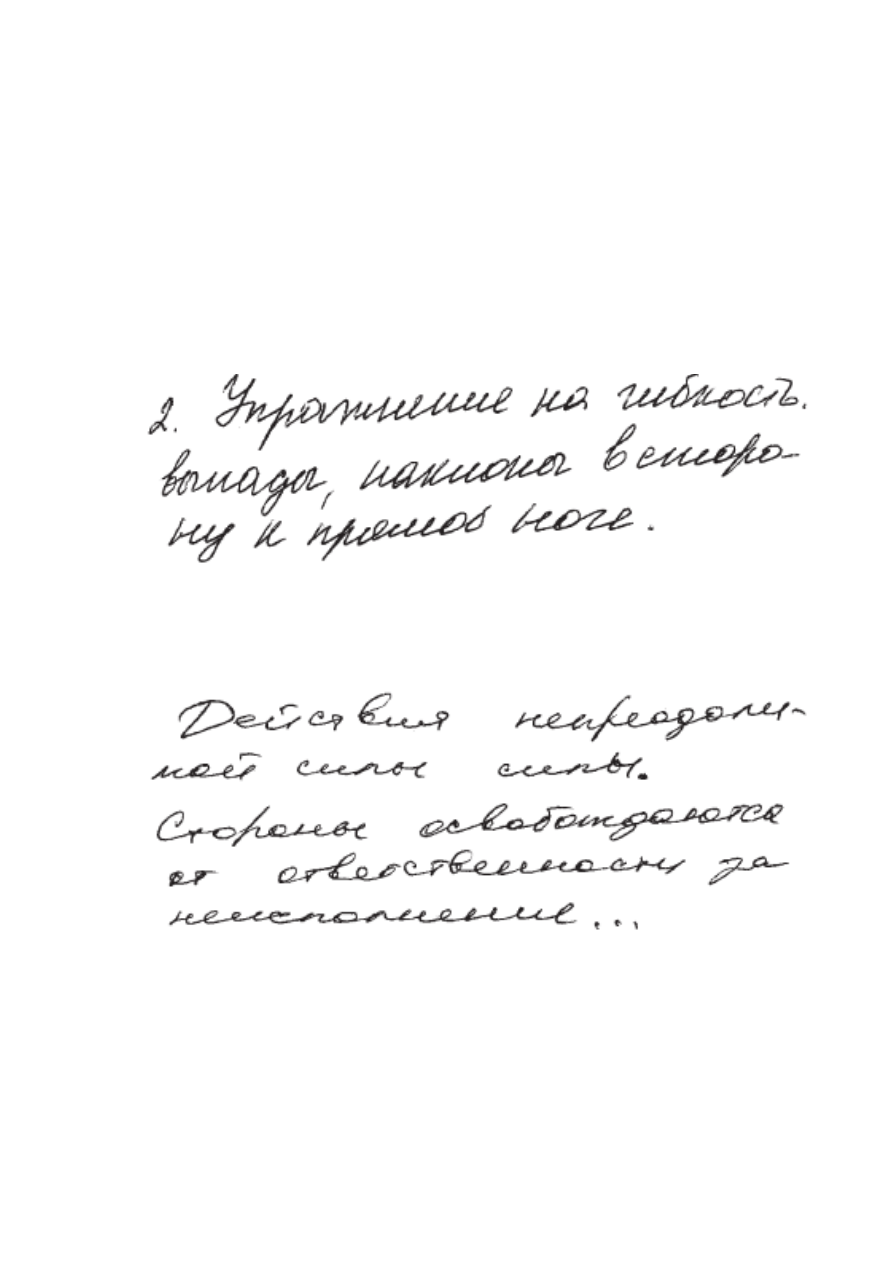 2. Упражнение на гибкость.
выпады, наклоны в сторо-
ну к прямой ноге.
Действия непреодоли-
мой силы силы.
Стороны освобождаются
от ответственности за
неисполнение...